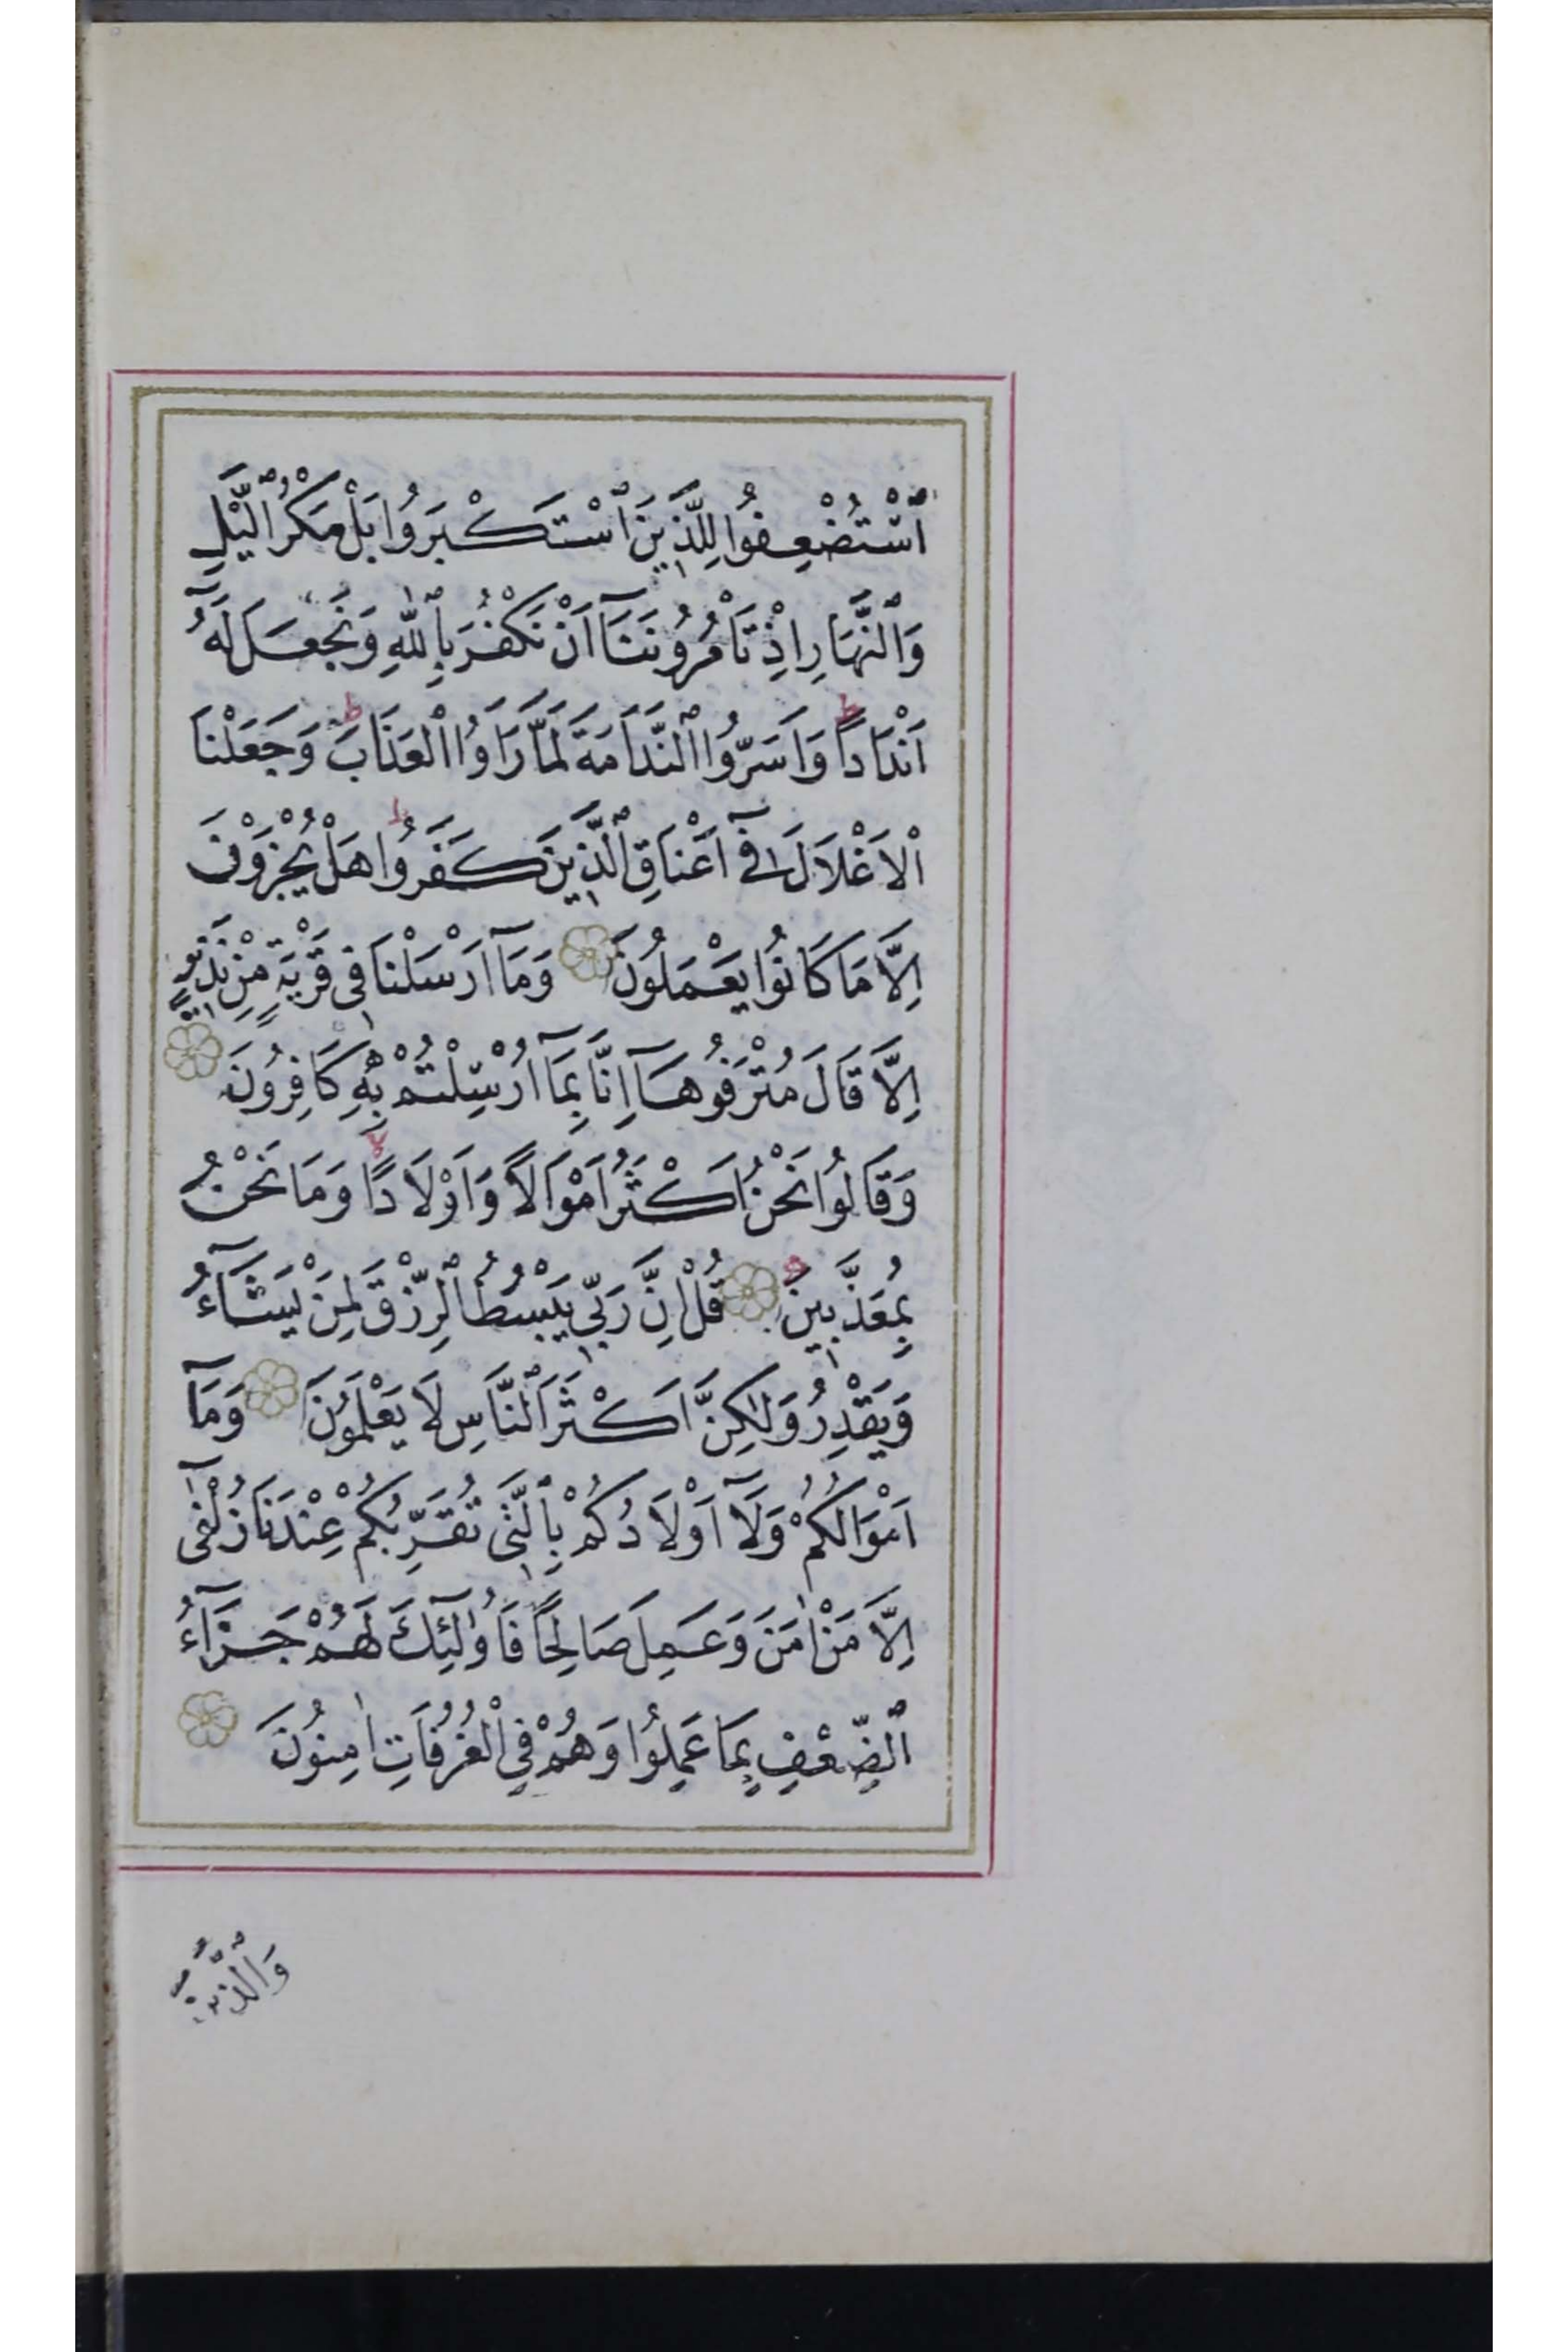 اَسْتُضْعِفُوا لِلَّذِينَ اسْتَكْبَرُوا بَلْ مَكْرُ الَّيْلِ
وَالنَّهَارِ اِذْ تَاْمُرُونَنَآ اَنْ نَكْفُرَ بِاللّٰهِ وَنَجْعَلَ لَهُٓ
اَنْدَادًا ط وَاَسَرُّوا النَّدَامَةَ لَمَّا رَاَوُا الْعَذَابَ ط وَجَعَلْنَا
الْاَغْلَالَ فِٓى اَعْنَاقِ الَّذِينَ كَفَرُوا ط هَلْ يُجْزَوْنَ
اِلَّا مَا كَانُوا يَعْمَلُونَ وَمَآ اَرْسَلْنَا فِى قَرْيَةٍ مِنْ نَذِيرٍ
اِلَّا قَالَ مُتْرَفُوهَآ اِنَّا بِمَآ اُرْسِلْتُمْ بِهِ كَافِرُونَ
وَقَالُوا نَحْنُ اَكْثَرُ اَمْوَالًا وَاَوْلَادًا لا وَمَا نَحْنُ
بِمُعَذَّبِينَ قُلْ اِنَّ رَبِّى يَبْسُطُ الرِّزْقَ لِمَنْ يَشَآءُ
وَيَقْدِرُ وَلٰكِنَّ اَكْثَرَ النَّاسِ لَا يَعْلَمُونَ وَمَآ
اَمْوَالُكُمْ وَلَآ اَوْلَادُكُمْ بِالَّتِى تُقَرِّبُكُمْ عِنْدَنَا زُلْفٰٓى
اِلَّا مَنْ اٰمَنَ وَعَمِلَ صَالِحًا فَاُولٰٓئِكَ لَهُمْ جَزَآءُ
الضِّعْفِ بِمَا عَمِلُوا وَهُمْ فِى الْغُرُفَاتِ اٰمِنُونَ
وَالَّذِينَ